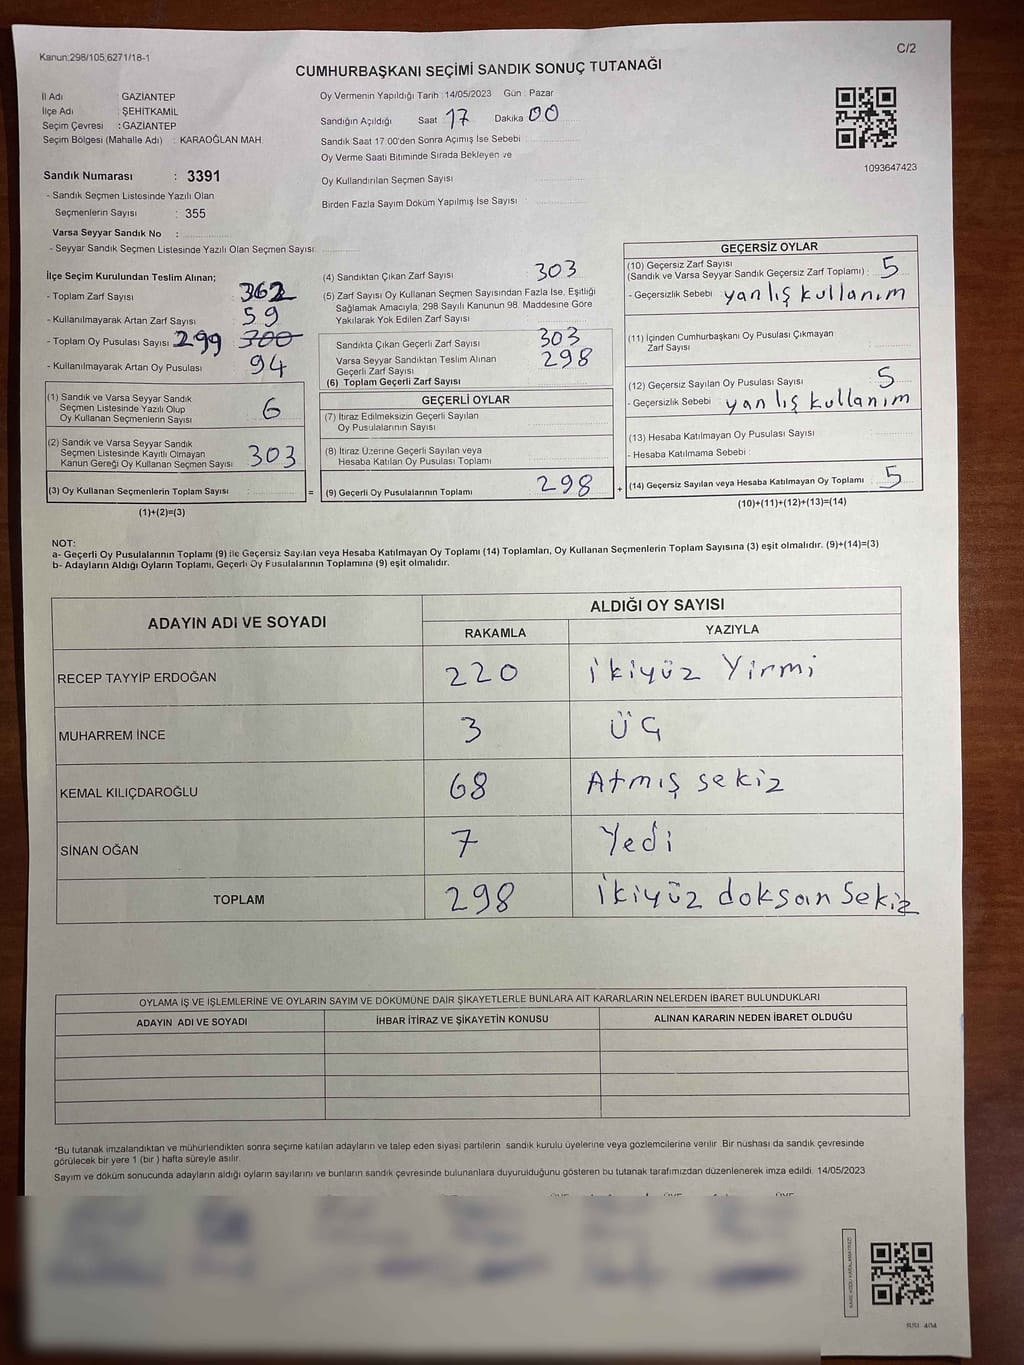 Kanun:298/105,6271/18-1
C/2
CUMHURBAŞKANI SEÇİMİ SANDIK SONUÇ TUTANAĞI
İl Adı : GAZİANTEP
İlçe Adı : ŞEHİTKAMİL
Seçim Çevresi : GAZİANTEP
Seçim Bölgesi (Mahalle Adı) : KARAOĞLAN MAH.
Sandık Numarası : 3391
- Sandık Seçmen Listesinde Yazılı Olan
Seçmenlerin Sayısı : 355
Varsa Seyyar Sandık No :
- Seyyar Sandık Seçmen Listesinde Yazılı Olan Seçmen Sayısı:
Oy Vermenin Yapıldığı Tarih : 14/05/2023 Gün : Pazar
Sandığın Açıldığı Saat : 17 Dakika 00
Sandık Saat 17:00'den Sonra Açımış İse Sebebi :
Oy Verme Saati Bitiminde Sırada Bekleyen ve
Oy Kullandırılan Seçmen Sayısı
Birden Fazla Sayım Döküm Yapılmış İse Sayısı :
1093647423
İlçe Seçim Kurulundan Teslim Alınan;
- Toplam Zarf Sayısı : 362
- Kullanılmayarak Artan Zarf Sayısı : 59
- Toplam Oy Pusulası Sayısı : 299 300
- Kullanılmayarak Artan Oy Pusulası : 94
(1) Sandık ve Varsa Seyyar Sandık
Seçmen Listesinde Yazılı Olup
Oy Kullanan Seçmenlerin Sayısı 6
(2) Sandık ve Varsa Seyyar Sandık
Seçmen Listesinde Kayıtlı Olmayan
Kanun Gereği Oy Kullanan Seçmen Sayısı 303
(3) Oy Kullanan Seçmenlerin Toplam Sayısı
(1)+(2)=(3)
(4) Sandıktan Çıkan Zarf Sayısı 303
(5) Zarf Sayısı Oy Kullanan Seçmen Sayısından Fazla İse, Eşitliği
Sağlamak Amacıyla, 298 Sayılı Kanunun 98. Maddesine Göre
Yakılarak Yok Edilen Zarf Sayısı
Sandıkta Çıkan Geçerli Zarf Sayısı 303
Varsa Seyyar Sandıktan Teslim Alınan
Geçerli Zarf Sayısı 298
(6) Toplam Geçerli Zarf Sayısı
GEÇERLİ OYLAR
(7) İtiraz Edilmeksizin Geçerli Sayılan
Oy Pusulalarının Sayısı
(8) İtiraz Üzerine Geçerli Sayılan veya
Hesaba Katılan Oy Pusulası Toplamı
= (9) Geçerli Oy Pusulalarının Toplamı 298
GEÇERSİZ OYLAR
(10) Geçersiz Zarf Sayısı
(Sandık ve Varsa Seyyar Sandık Geçersiz Zarf Toplamı) : 5
- Geçersizlik Sebebi : yanlış kullanım
(11) İçinden Cumhurbaşkanı Oy Pusulası Çıkmayan
Zarf Sayısı
(12) Geçersiz Sayılan Oy Pusulası Sayısı : 5
- Geçersizlik Sebebi : yanlış kullanım
(13) Hesaba Katılmayan Oy Pusulası Sayısı
- Hesaba Katılmama Sebebi :
+ (14) Geçersiz Sayılan veya Hesaba Katılmayan Oy Toplamı : 5
(10)+(11)+(12)+(13)=(14)
NOT:
a- Geçerli Oy Pusulalarının Toplamı (9) ile Geçersiz Sayılan veya Hesaba Katılmayan Oy Toplamı (14) Toplamları, Oy Kullanan Seçmenlerin Toplam Sayısına (3) eşit olmalıdır. (9)+(14)=(3)
b- Adayların Aldığı Oyların Toplamı, Geçerli Oy Pusulalarının Toplamına (9) eşit olmalıdır.
ADAYIN ADI VE SOYADI
ALDIĞI OY SAYISI
RAKAMLA YAZIYLA
RECEP TAYYİP ERDOĞAN 220 ikiyüz Yirmi
MUHARREM İNCE 3 ÜÇ
KEMAL KILIÇDAROĞLU 68 Atmış sekiz
SİNAN OĞAN 7 Yedi
TOPLAM 298 ikiyüz doksan Sekiz
OYLAMA İŞ VE İŞLEMLERİNE VE OYLARIN SAYIM VE DÖKÜMÜNE DAİR ŞİKAYETLERLE BUNLARA AİT KARARLARIN NELERDEN İBARET BULUNDUKLARI
ADAYIN ADI VE SOYADI İHBAR İTİRAZ VE ŞİKAYETİN KONUSU ALINAN KARARIN NEDEN İBARET OLDUĞU
*Bu tutanak imzalandıktan ve mühürlendikten sonra seçime katılan adayların ve talep eden siyasi partilerin sandık kurulu üyelerine veya gözlemcilerine verilir. Bir nüshası da sandık çevresinde
görülecek bir yere 1 (bir ) hafta süreyle asılır.
Sayım ve döküm sonucunda adayların aldığı oyların sayılarını ve bunların sandık çevresinde bulunanlara duyurulduğunu gösteren bu tutanak tarafımızdan düzenlenerek imza edildi. 14/05/2023